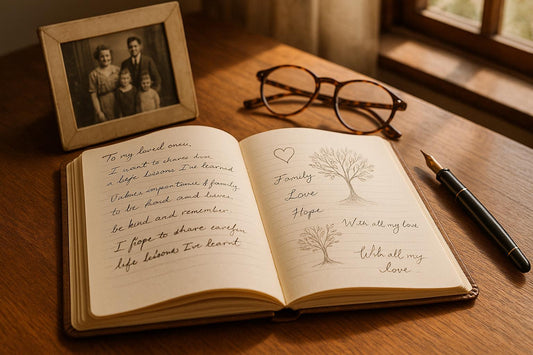 To my loved ones,
I want to share
life lessons I've learned
importance & family
to be and
be kind and remember
I hope to share
life lessons I've learnt
Family
Love
Hope
With all my love
With all my
love